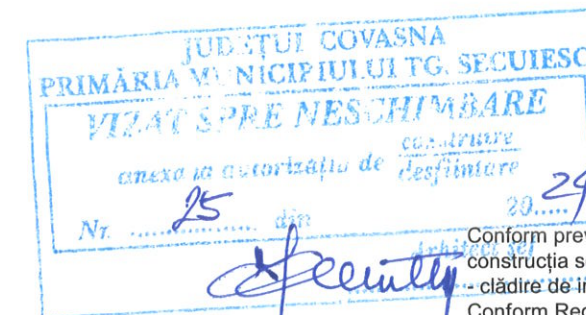 JUDEȚUL COVASNA
PRIMĂRIA MUNICIPIULUI TG. SECUIESC
VIZAT SPRE NESCHIMBARE
construire
anexa la autorizația de desființare
Nr. 25 din 20 24
Arhitect șef
Conform prev
construcția s
- clădire de în
Conform Re